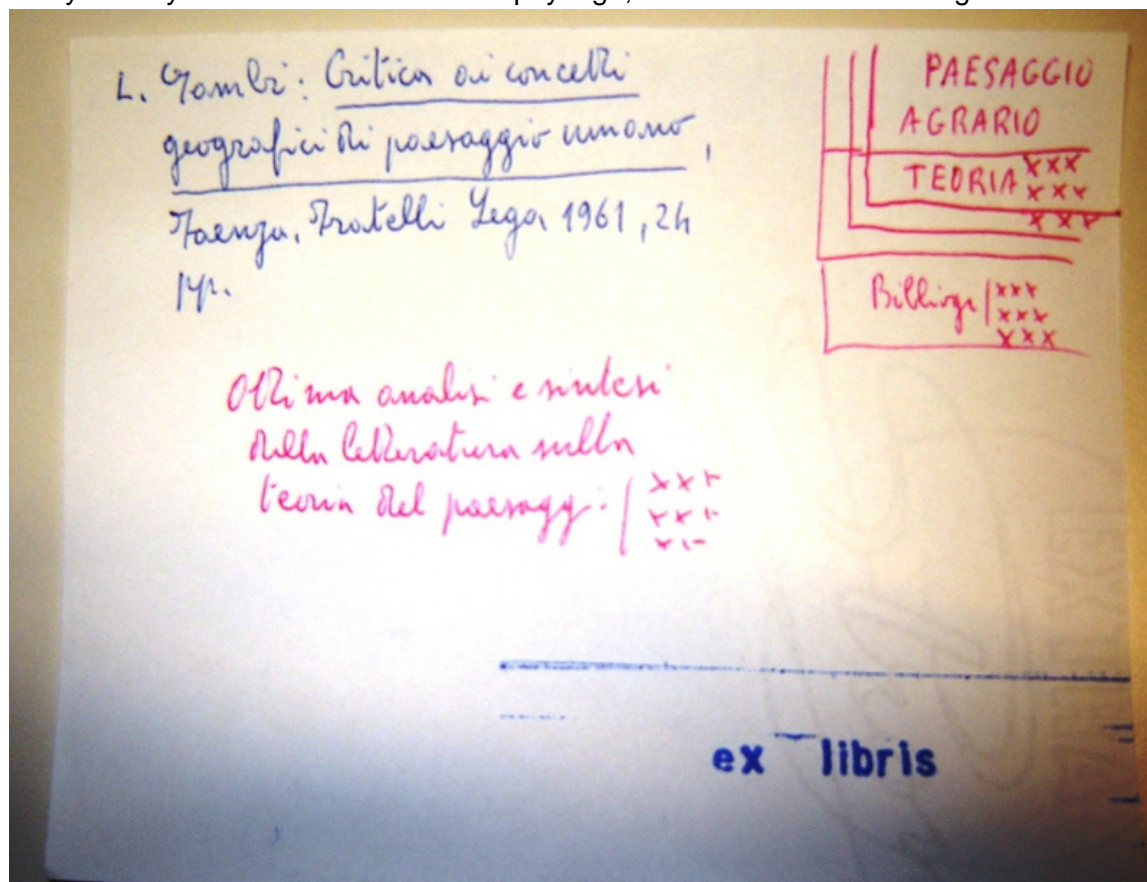 L. Gambi: Critica ai concetti
geografici di paesaggio umano,
Faenza, Fratelli Lega 1961, 24
pp.
PAESAGGIO
AGRARIO
TEORIA xxx
xxx
xxx
xxx
xxx
xxx
Ottima analisi e sintesi
della letteratura sulla
teoria del paesagg. / xxx
xxx
ex libris